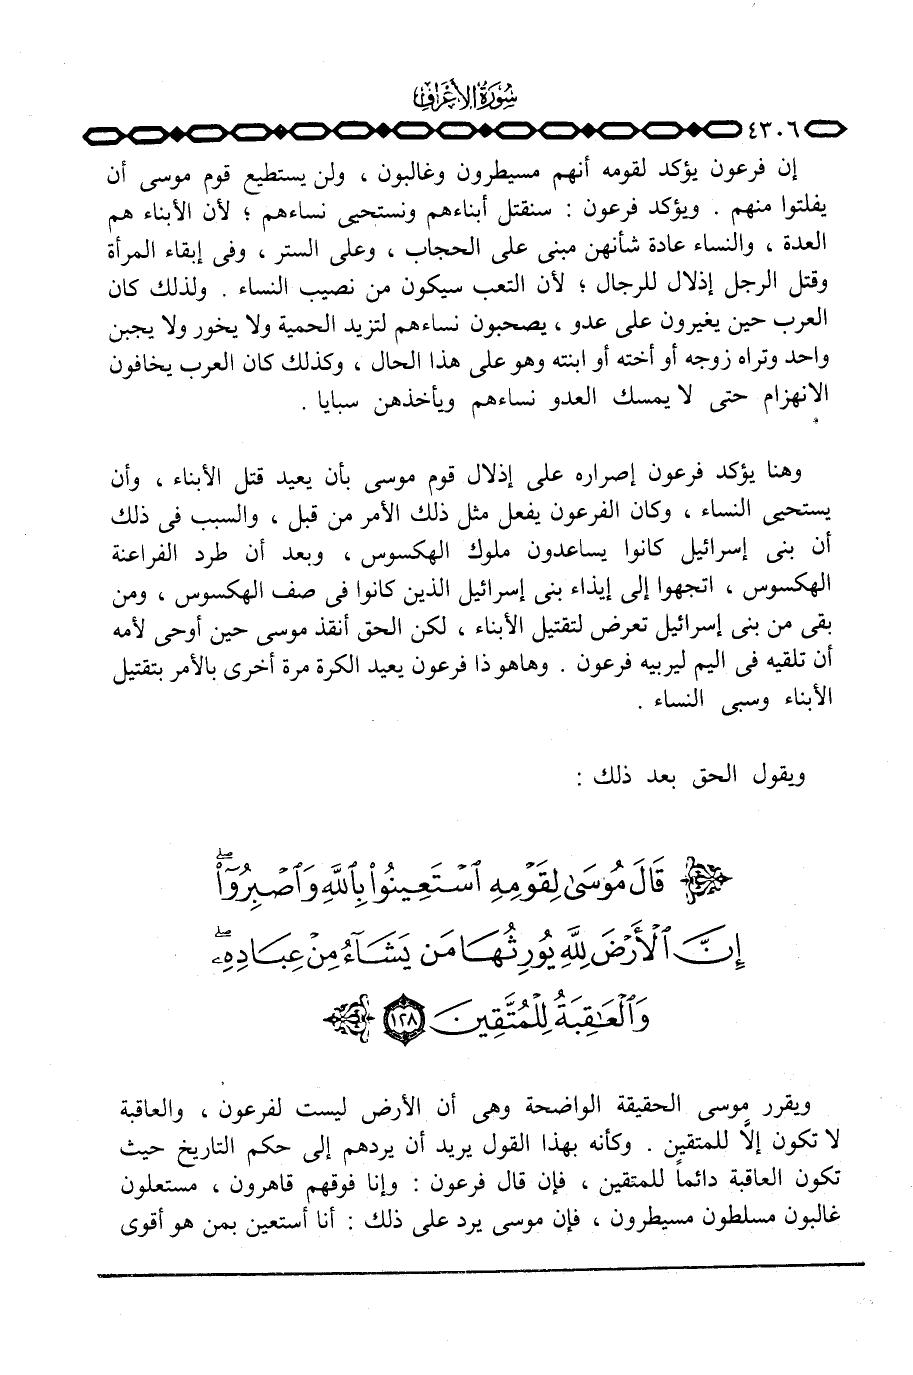 سورة الأعراف
٤٣٠٦
إن فرعون يؤكد لقومه أنهم مسيطرون وغالبون ، ولن يستطيع قوم موسى أن
يفلتوا منهم . ويؤكد فرعون : سنقتل أبناءهم ونستحيى نساءهم ؛ لأن الأبناء هم
العدة ، والنساء عادة شأنهن مبنى على الحجاب ، وعلى الستر ، وفى إبقاء المرأة
وقتل الرجل إذلال للرجال ؛ لأن التعب سيكون من نصيب النساء . ولذلك كان
العرب حين يغيرون على عدو ، يصحبون نساءهم لتزيد الحمية ولا يخور ولا يجبن
واحد وتراه زوجه أو أخته أو ابنته وهو على هذا الحال ، وكذلك كان العرب يخافون
الانهزام حتى لا يمسك العدو نساءهم ويأخذهن سبايا .
وهنا يؤكد فرعون إصراره على إذلال قوم موسى بأن يعيد قتل الأبناء ، وأن
يستحيى النساء ، وكان الفرعون يفعل مثل ذلك الأمر من قبل ، والسبب فى ذلك
أن بنى إسرائيل كانوا يساعدون ملوك الهكسوس ، وبعد أن طرد الفراعنة
الهكسوس ، اتجهوا إلى إيذاء بنى إسرائيل الذين كانوا فى صف الهكسوس ، ومن
بقى من بنى إسرائيل تعرض لتقتيل الأبناء ، لكن الحق أنقذ موسى حين أوحى لأمه
أن تلقيه فى اليم ليربيه فرعون . وهاهو ذا فرعون يعيد الكرة مرة أخرى بالأمر بتقتيل
الأبناء وسبى النساء .
ويقول الحق بعد ذلك :
قَالَ مُوسَىٰ لِقَوْمِهِ ٱسْتَعِينُوا۟ بِٱللَّهِ وَٱصْبِرُوٓا۟ ۖ
إِنَّ ٱلْأَرْضَ لِلَّهِ يُورِثُهَا مَن يَشَآءُ مِنْ عِبَادِهِۦ ۖ
وَٱلْعَٰقِبَةُ لِلْمُتَّقِينَ ١٢٨
ويقرر موسى الحقيقة الواضحة وهى أن الأرض ليست لفرعون ، والعاقبة
لا تكون إلَّا للمتقين . وكأنه بهذا القول يريد أن يردهم إلى حكم التاريخ حيث
تكون العاقبة دائماً للمتقين ، فإن قال فرعون : وإنا فوقهم قاهرون ، مستعلون
غالبون مسلطون مسيطرون ، فإن موسى يرد على ذلك : أنا أستعين بمن هو أقوى